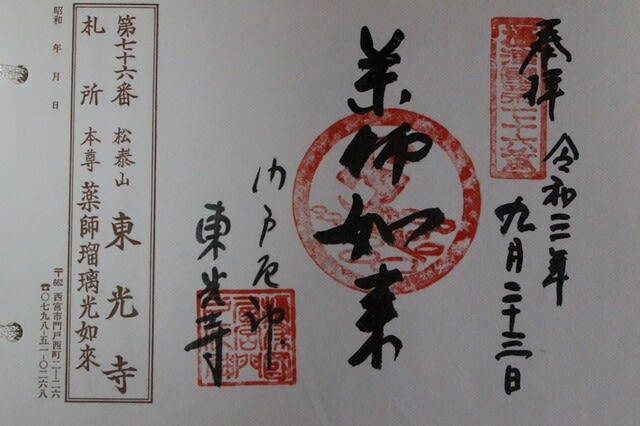 奉拝
令和三年
九月二十三日
薬師如来
門戸厄神
東光寺
第七十六番
札所
松泰山
東光寺
本尊
薬師瑠璃光如來
〒662 西宮市門戸西町二―二六
☎〇七九八―五一―〇二六八
昭和 年 月 日